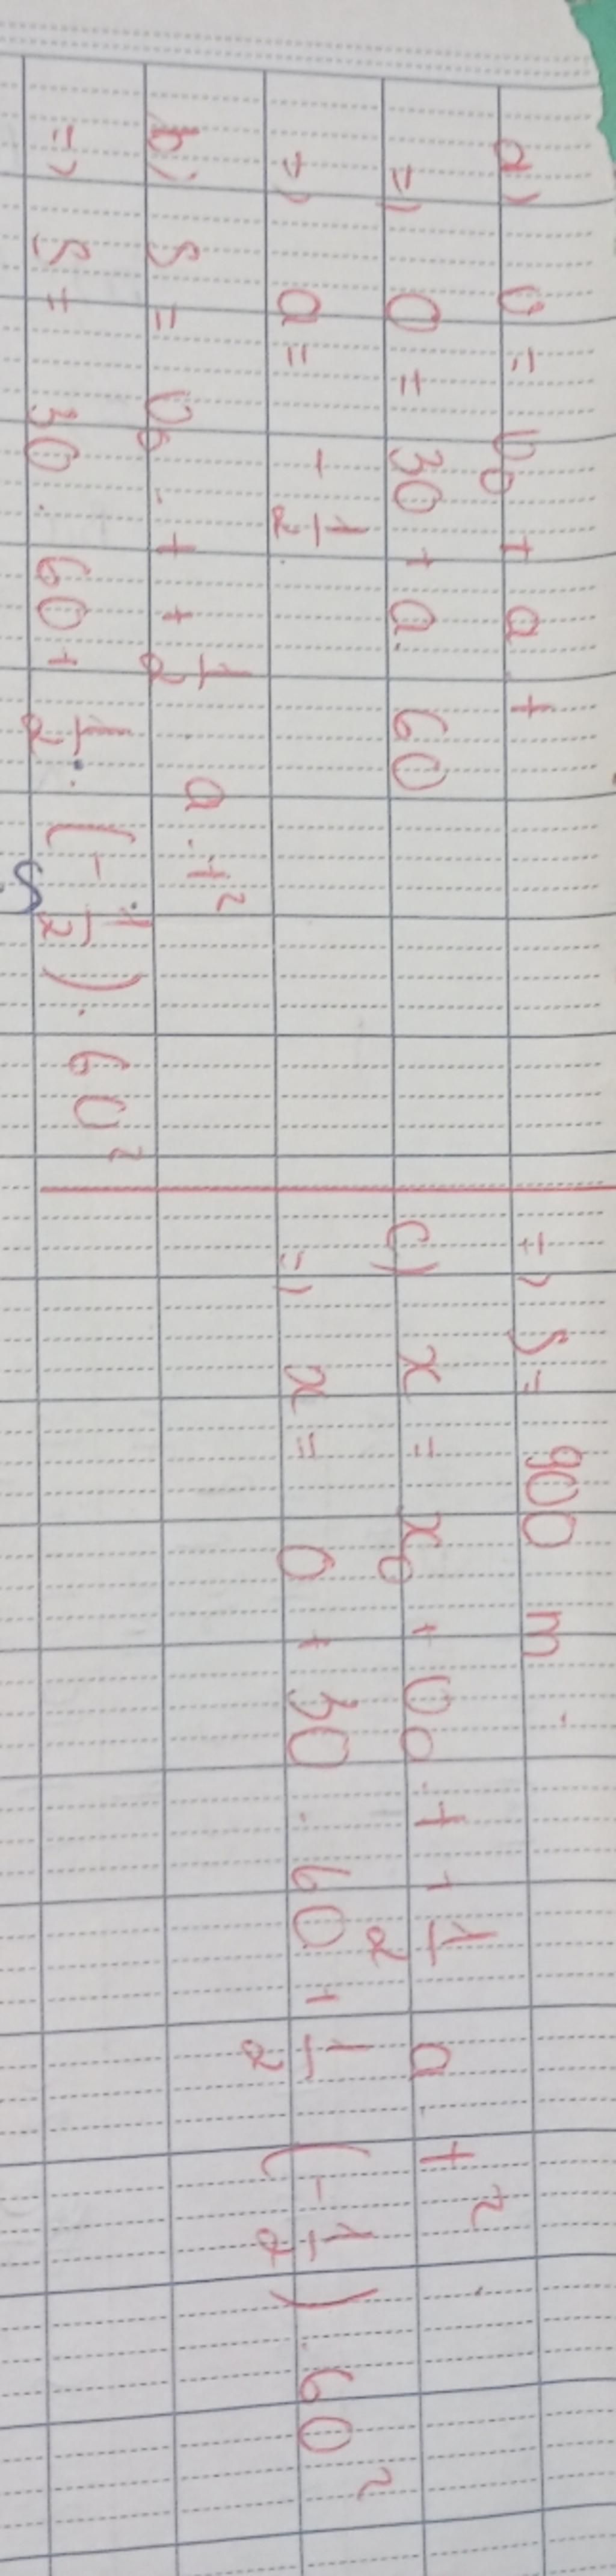 a) v = v₀ + a . t
=) 0 = 30 + a . 60
=) a = - 1/2 .
b) S = v₀ . t + 1/2 . a . t²
=) S = 30 . 60 + 1/2 . (- 1/2) . 60²
=) S = 900 m .
c) x = x₀ + v₀ . t + 1/2 a . t² .
=) x = 0 + 30 . 60 + 1/2 (- 1/2) . 60²